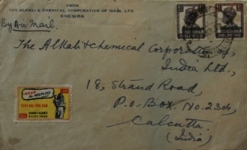 FROM
THE ALKALI & CHEMICAL CORPORATION OF INDIA, LTD
KHEWRA
By Air Mail
The Alkali & Chemical Corporation of
India Ltd.,
18, Strand Road,
P.O. Box No. 234,
Calcutta
(India)